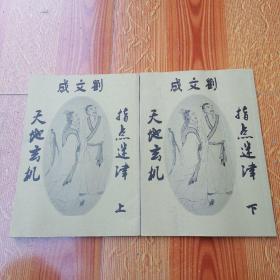 劉文成
指点迷津
天地玄机
上
劉文成
指点迷津
天地玄机
下